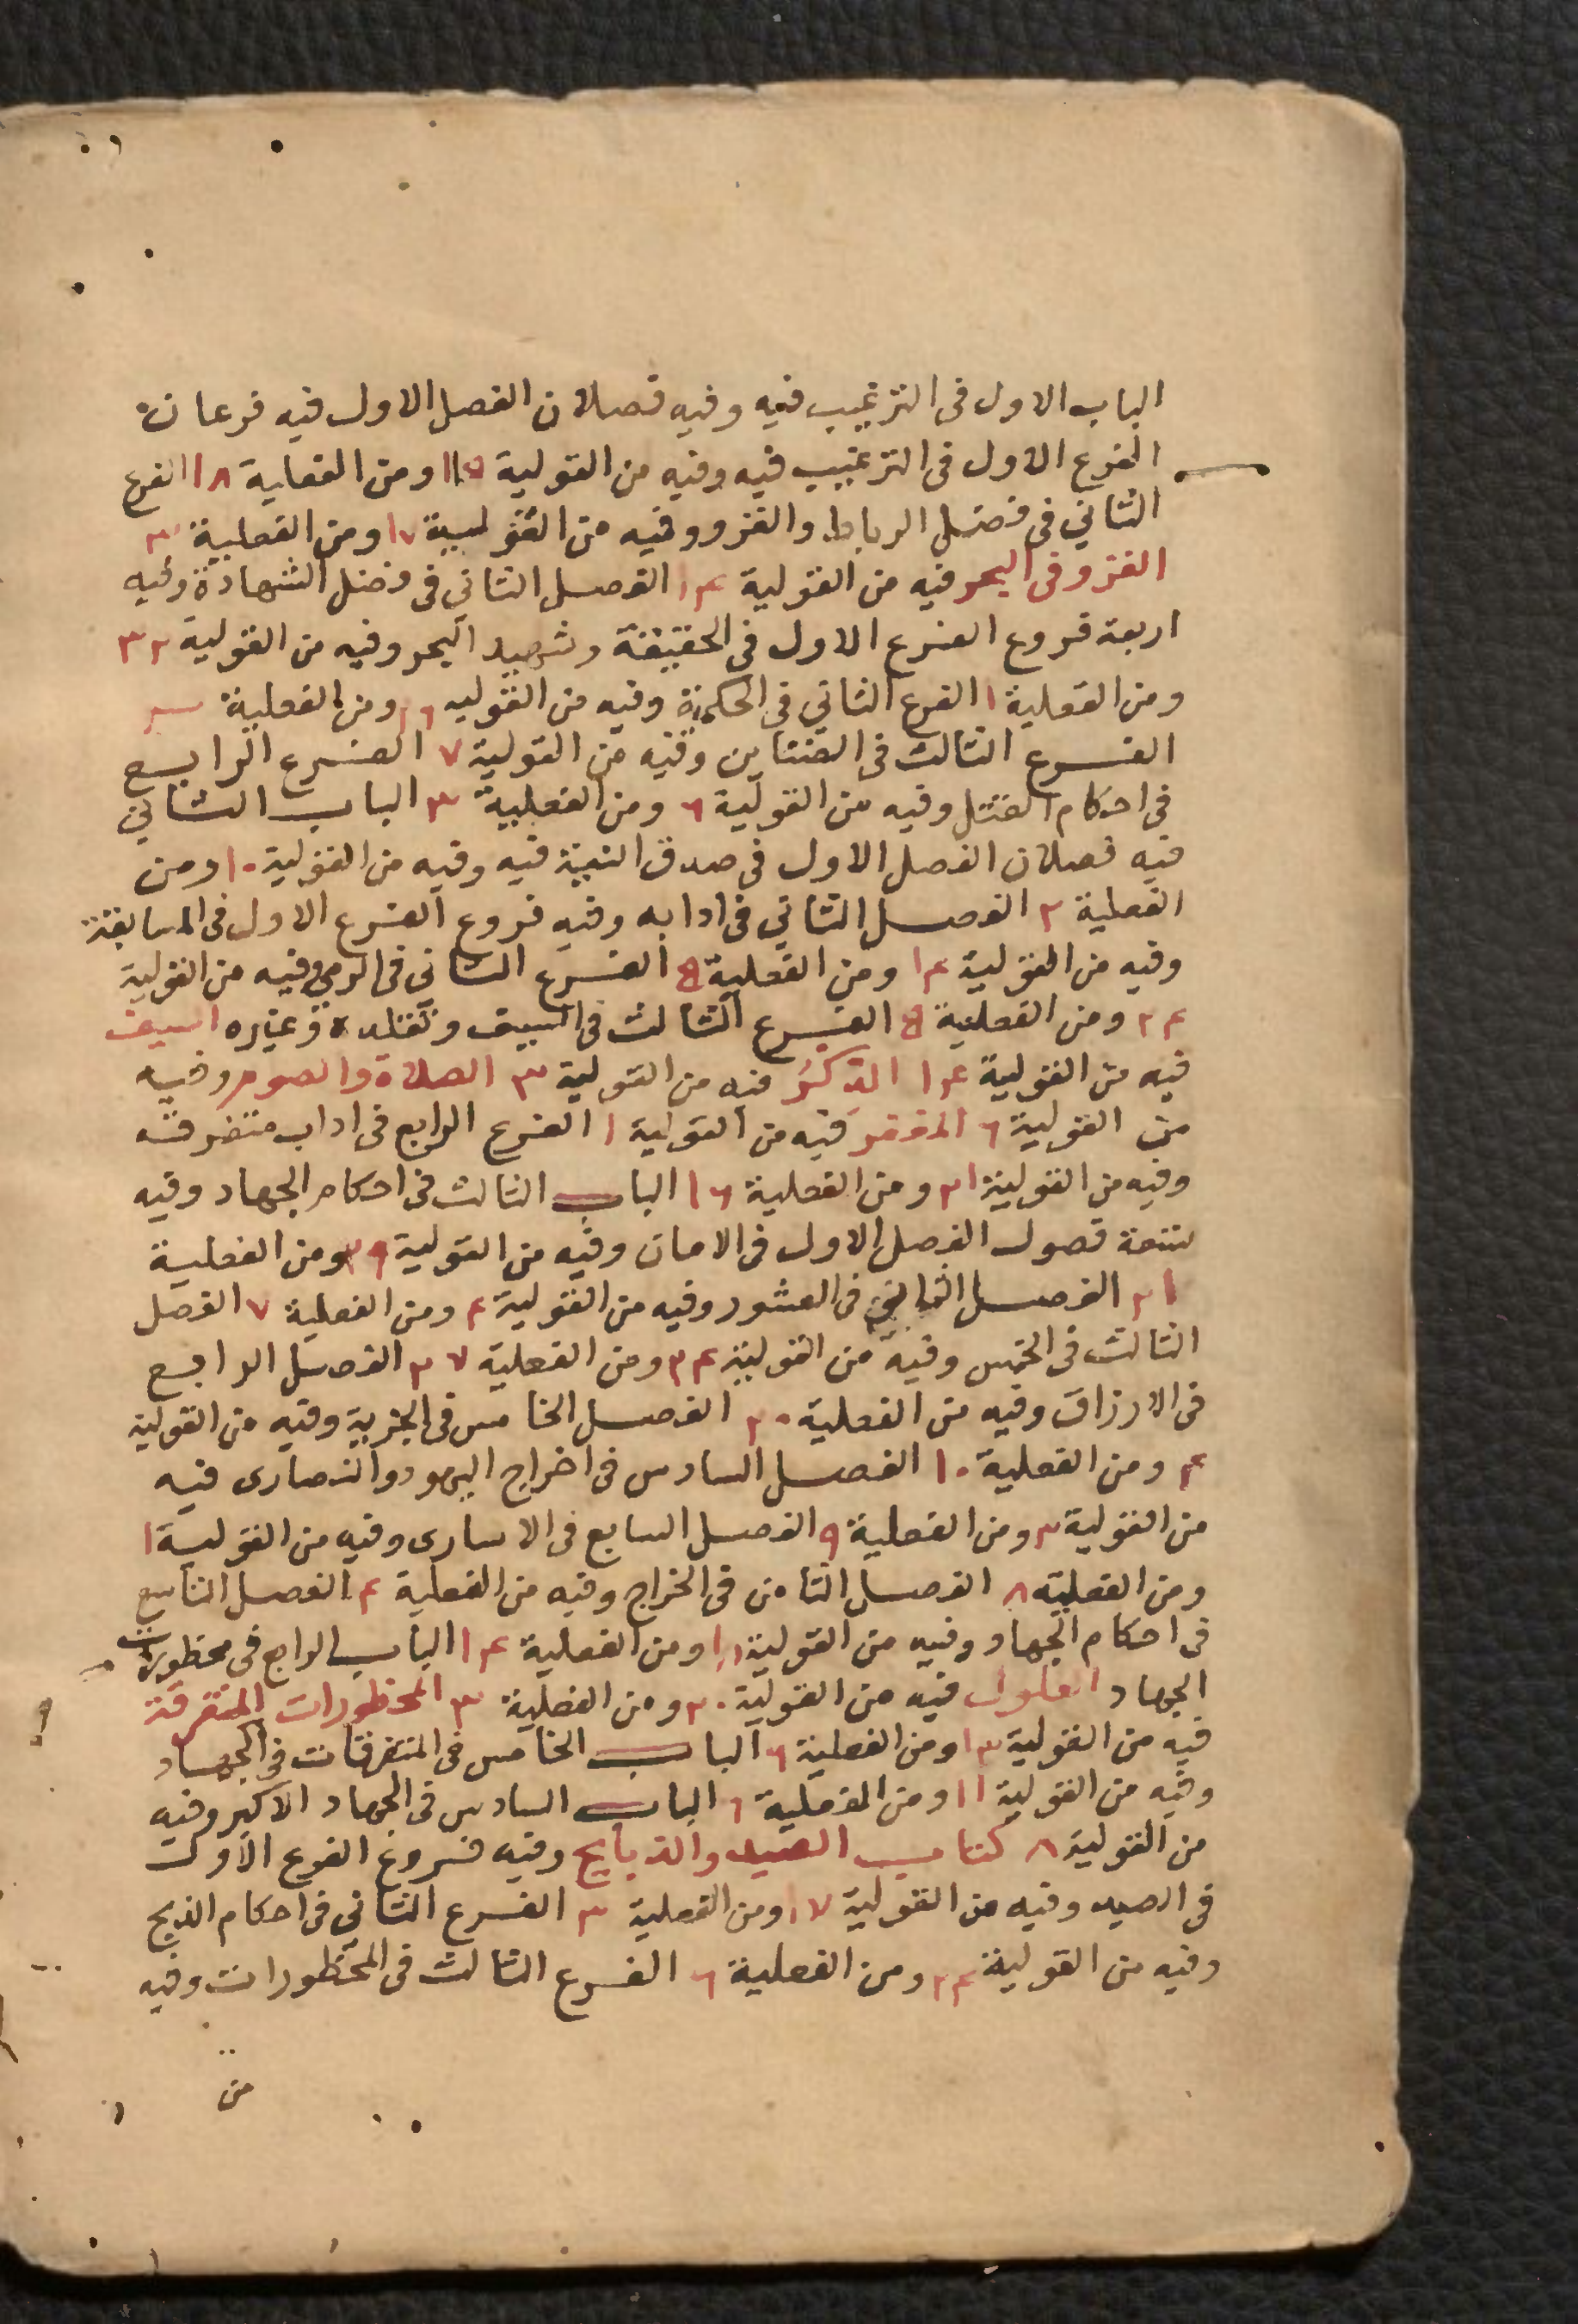 الباب الاول فى الترغيب فيه وفيه فصلان الفصل الاول فيه فرعان
الفرع الاول فى الترغيب فيه وفيه من القولية ومن الفعلية ١٨ الفرع
الثاني فى فضل الرباط والغزو وفيه من القولية ١٧ ومن الفعلية ٣
الغزو فى البحر فيه من القولية ١٤ الفصل الثاني فى فضل الشهادة وفيه
اربعة فروع الفرع الاول فى الحقيقة وشهيد البحر وفيه من القولية ٣٢
ومن الفعلية ١ الفرع الثاني فى الحكمية وفيه من القوليه ومن الفعلية
الفرع الثالث فى وفيه من القولية ٧ الفرع الرابع
فى احكام القتل وفيه من القولية ٦ ومن الفعلية ٣ الباب الثاني
فيه فصلان الفصل الاول فى صدق النية فيه وفيه من القولية ١٠ ومن
الفعلية ٢ الفصل الثاني فى ادابه وفيه فروع الفرع الاول فى المسابقة
وفيه من القولية ١٤ ومن الفعلية ٥ الفرع الثاني فى الرمي وفيه من القولية
٢٤ ومن الفعلية ٥ الفرع الثالث فى السيف وتقلده وغيره السيف
فيه من القولية ١٤ الذكر فيه من القولية ٣ الصلاة والصوم وفيه
من القولية ٦ فيه من القولية ١ الفرع الرابع فى اداب متفرقه
وفيه من القولية ٢١ ومن الفعلية ١٦ الباب الثالث فى احكام الجهاد وفيه
تتعة فصول الفصل الاول فى الامان وفيه من القولية ٢٩ ومن الفعلية
٢١ الفصل الثاني فى العشور وفيه من القولية ٤ ومن الفعلية ٧ الفصل
الثالث فى الخمس وفيه من القولية ٣٤ ومن الفعلية ٣٧ الفصل الرابع
فى الارزاق وفيه من الفعلية ٢٠ الفصل الخامس فى الجزية وفيه من القولية
٤ ومن الفعلية ١٠ الفصل السادس فى اخراج اليهود والنصارى فيه
من القولية ٣ ومن الفعلية ٩ الفصل السابع فى الاسارى وفيه من القولية ١
ومن الفعلية ٨ الفصل الثامن فى الخراج وفيه من الفعلية ٤ الفصل التاسع
فى احكام الجهاد وفيه من القولية ومن الفعلية ١٤ الباب الرابع فى محظورات
الجهاد الغلول فيه من القولية ٢٠ ومن الفعلية ٣ المحظورات المتفرقة
فيه من القولية ١٣ ومن الفعلية ٦ الباب الخامس فى المتفرقات فى الجهاد
وفيه من القولية ١١ ومن الفعلية ٦ الباب السادس فى الجهاد الاكبر وفيه
من القولية ٨ كتاب الصيد والذبايح وفيه فروع الفرع الاول
فى الصيد وفيه من القولية ١٧ ومن الفعلية ٣ الفرع الثاني فى احكام الذبح
وفيه من القولية ٢٤ ومن الفعلية ٦ الفرع الثالث فى المحظورات وفيه
من